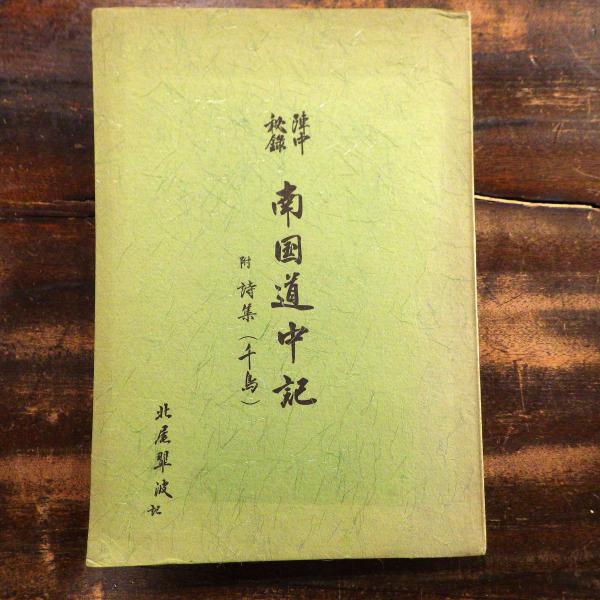 陣中
秘錄
南国道中記
附 詩集（千鳥）
北尾翠波 記